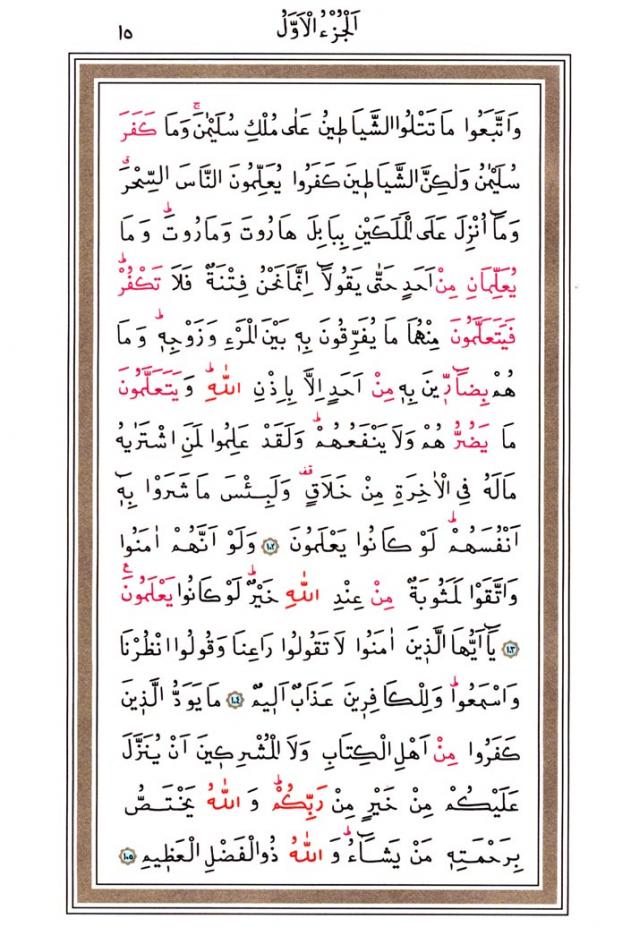 اَلْجُزْءُ الْاَوَّلُ
١٥
وَاتَّبَعُوا مَا تَتْلُوا الشَّيَاطٖينُ عَلٰى مُلْكِ سُلَيْمٰنَۚ وَمَا كَفَرَ
سُلَيْمٰنُ وَلٰكِنَّ الشَّيَاطٖينَ كَفَرُوا يُعَلِّمُونَ النَّاسَ السِّحْرَۗ
وَمَٓا اُنْزِلَ عَلَى الْمَلَكَيْنِ بِبَابِلَ هَارُوتَ وَمَارُوتَۜ وَمَا
يُعَلِّمَانِ مِنْ اَحَدٍ حَتّٰى يَقُولَٓا اِنَّمَا نَحْنُ فِتْنَةٌ فَلَا تَكْفُرْۜ
فَيَتَعَلَّمُونَ مِنْهُمَا مَا يُفَرِّقُونَ بِهٖ بَيْنَ الْمَرْءِ وَزَوْجِهٖۜ وَمَا
هُمْ بِضَٓارّٖينَ بِهٖ مِنْ اَحَدٍ اِلَّا بِاِذْنِ اللّٰهِۜ وَيَتَعَلَّمُونَ
مَا يَضُرُّهُمْ وَلَا يَنْفَعُهُمْۜ وَلَقَدْ عَلِمُوا لَمَنِ اشْتَرٰيهُ
مَا لَهُ فِي الْاٰخِرَةِ مِنْ خَلَاقٍۜ وَلَبِئْسَ مَا شَرَوْا بِهٖٓ
اَنْفُسَهُمْۜ لَوْ كَانُوا يَعْلَمُونَ ﴿١٠٢﴾ وَلَوْ اَنَّهُمْ اٰمَنُوا
وَاتَّقَوْا لَمَثُوبَةٌ مِنْ عِنْدِ اللّٰهِ خَيْرٌۜ لَوْ كَانُوا يَعْلَمُونَࣖ
﴿١٠٣﴾ يَٓا اَيُّهَا الَّذٖينَ اٰمَنُوا لَا تَقُولُوا رَاعِنَا وَقُولُوا انْظُرْنَا
وَاسْمَعُواۜ وَلِلْكَافِرٖينَ عَذَابٌ اَلٖيمٌ ﴿١٠٤﴾ مَا يَوَدُّ الَّذٖينَ
كَفَرُوا مِنْ اَهْلِ الْكِتَابِ وَلَا الْمُشْرِكٖينَ اَنْ يُنَزَّلَ
عَلَيْكُمْ مِنْ خَيْرٍ مِنْ رَبِّكُمْۜ وَاللّٰهُ يَخْتَصُّ
بِرَحْمَتِهٖ مَنْ يَشَٓاءُۜ وَاللّٰهُ ذُو الْفَضْلِ الْعَظٖيمِ ﴿١٠٥﴾